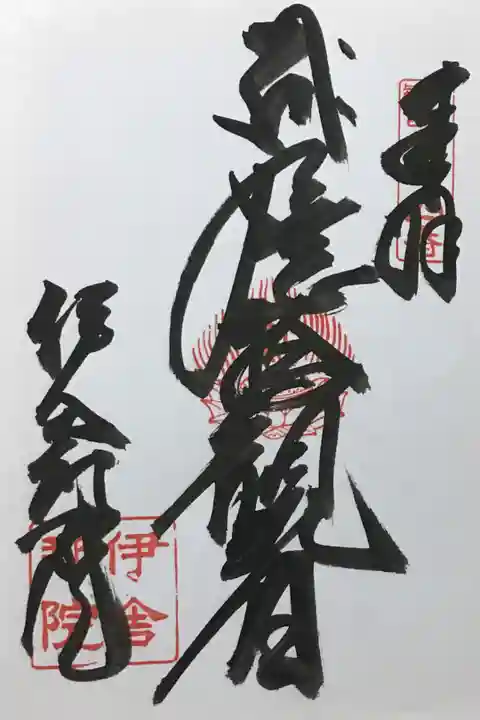 奉拝
如意輪観音
伊舎那院
伊舎
那院